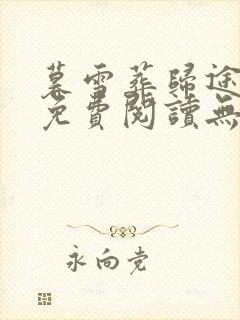 暮雪葬歸途
免費閱讀無
永向党